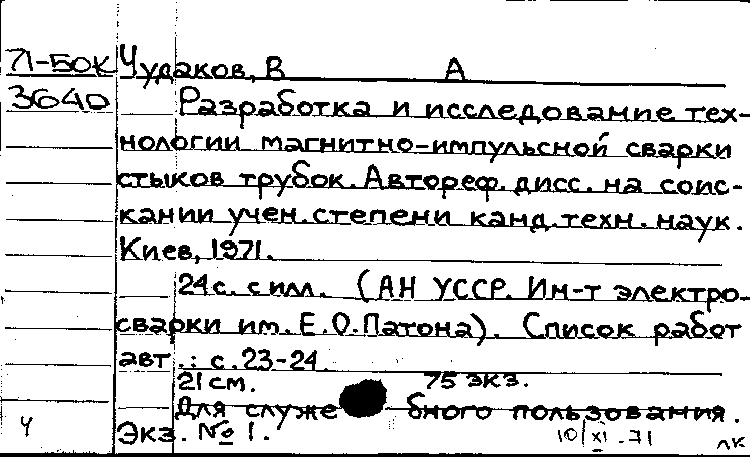 71-БОК Чудаков, В А
3640 Разработка и исследование тех-
нологии магнитно-импульсной сварки
стыков трубок. Автореф. дисс. на соис-
кании учен. степени канд. техн. наук.
Киев, 1971.
24 с. с илл. (АН УССР. Ин-т электро-
сварки им. Е.О.Патона). Список работ
авт.: с.23-24.
21 см. 75 экз.
Для служебного пользования.
Ч Экз. № 1. 10/XI-71
лк